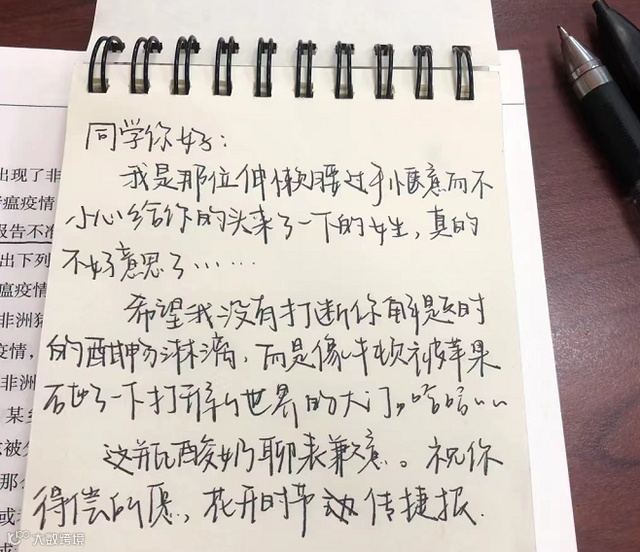 同学你好：
我是那位伸懒腰过于惬意而不
小心给你的头来了一下的女生，真的
不好意思了……
希望我没有打断你解题时
的酣畅淋漓，而是像牛顿被苹果
砸了一下打开新世界的大门。哈哈……
这瓶酸奶聊表歉意。祝你
得偿所愿，花开时节动传捷报.
出现了非
瘟疫情
报告不准
出下列
瘟疫情
非洲猪
疫情，
非洲
某乡
被父
那么
或
或者
大数跨境